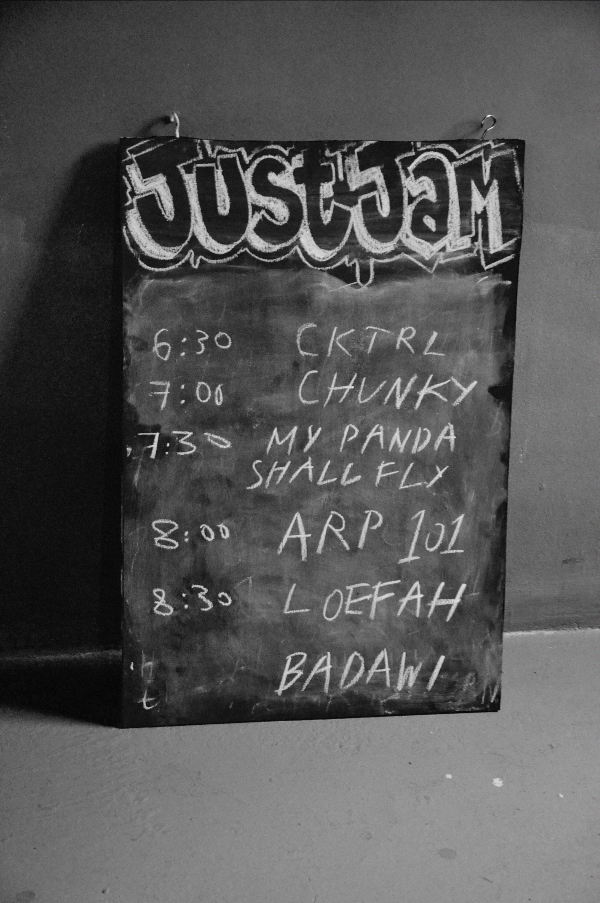 JustJam
6:30 CKTRL
7:00 CHUNKY
7:30 MY PANDA
SHALL FLY
8:00 ARP 101
8:30 LOEFAH
BADAWI